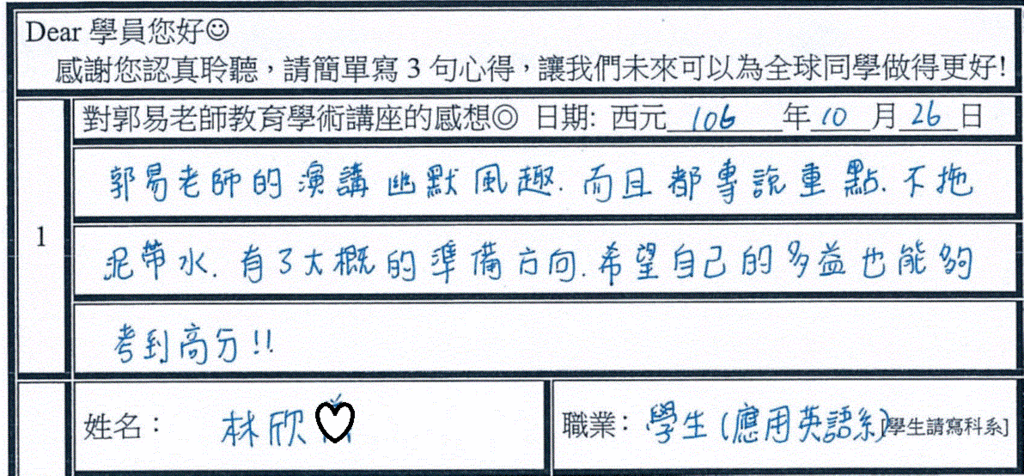 Dear 學員您好☺
感謝您認真聆聽，請簡單寫 3 句心得，讓我們未來可以為全球同學做得更好!
對郭易老師教育學術講座的感想◎ 日期: 西元 106 年 10 月 26 日
1
郭易老師的演講幽默風趣. 而且都專說重點. 不拖
泥帶水. 有了大概的準備方向. 希望自己的多益也能夠
考到高分!!
姓名： 林欣♡ 職業： 學生(應用英語系) [學生請寫科系]